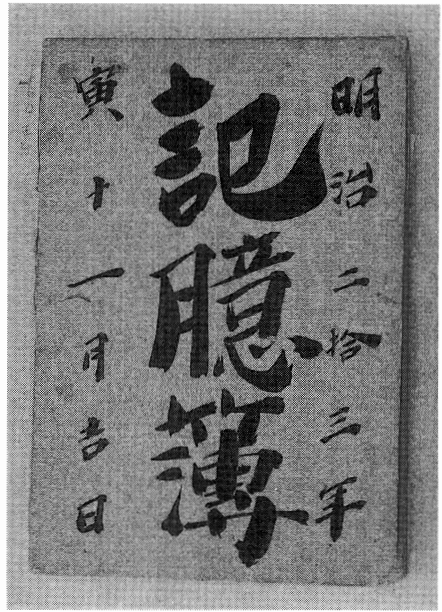 明治二拾三年
記臆簿
寅十一月吉日